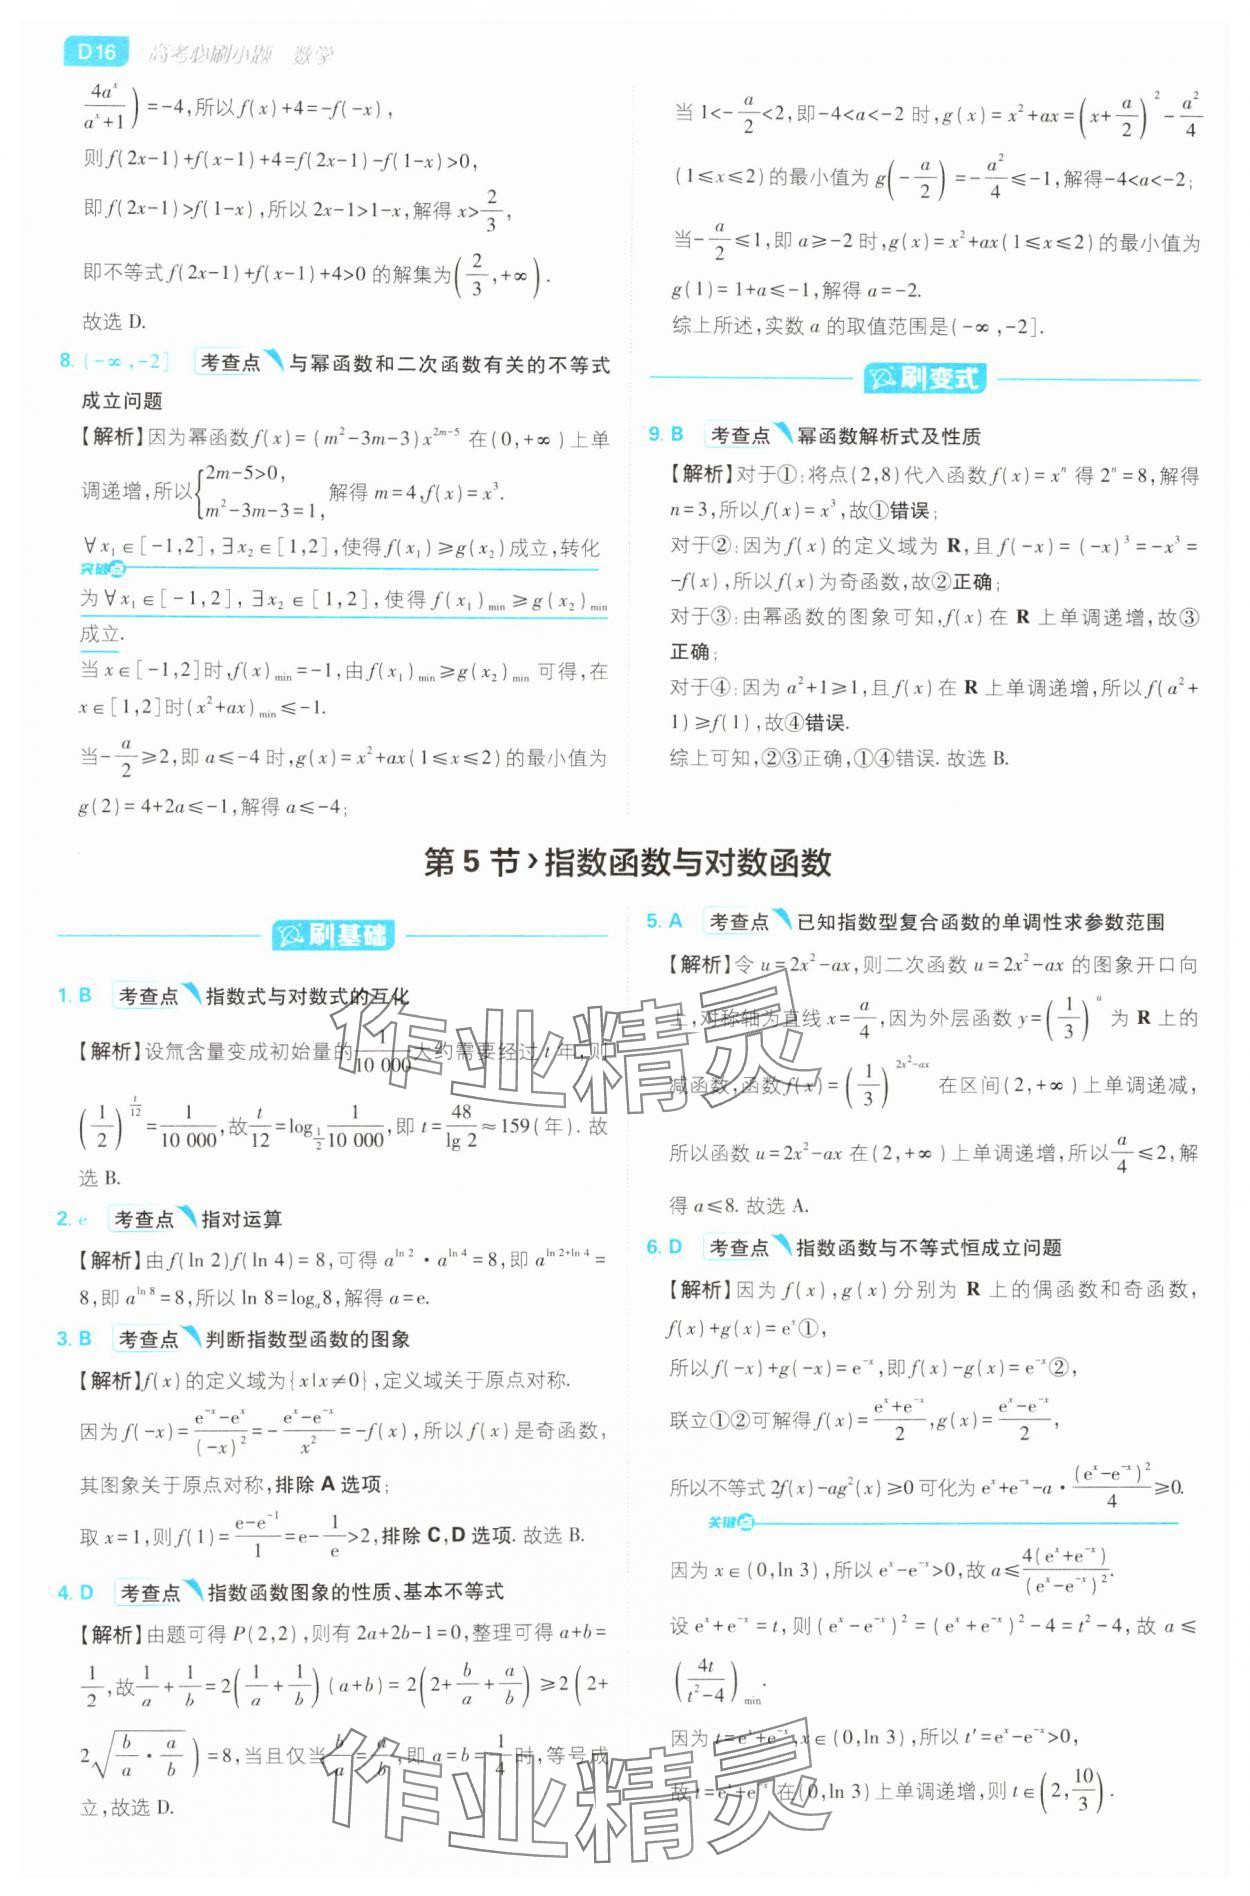 D16 高考必刷小题 数学
4aˣ/(aˣ+1))=-4,所以f(x)+4=-f(-x),
则f(2x-1)+f(x-1)+4=f(2x-1)-f(1-x)>0,
即f(2x-1)>f(1-x),所以2x-1>1-x,解得x>2/3,
即不等式f(2x-1)+f(x-1)+4>0的解集为(2/3,+∞).
故选D.
8. (-∞,-2] 考查点 与幂函数和二次函数有关的不等式
成立问题
【解析】因为幂函数f(x)=(m²-3m-3)x^(2m-5)在(0,+∞)上单
调递增,所以{2m-5>0, m²-3m-3=1, 解得m=4,f(x)=x³.
∀x₁∈[-1,2],∃x₂∈[1,2],使得f(x₁)≥g(x₂)成立,转化
突破点
为∀x₁∈[-1,2],∃x₂∈[1,2],使得f(x₁)min≥g(x₂)min
成立.
当x∈[-1,2]时,f(x)min=-1,由f(x₁)min≥g(x₂)min可得,在
x∈[1,2]时(x²+ax)min≤-1.
当-a/2≥2,即a≤-4时,g(x)=x²+ax(1≤x≤2)的最小值为
g(2)=4+2a≤-1,解得a≤-4;
当1<-a/2<2,即-4<a<-2时,g(x)=x²+ax=(x+a/2)²-a²/4
(1≤x≤2)的最小值为g(-a/2)=-a²/4≤-1,解得-4<a<-2;
当-a/2≤1,即a≥-2时,g(x)=x²+ax(1≤x≤2)的最小值为
g(1)=1+a≤-1,解得a=-2.
综上所述,实数a的取值范围是(-∞,-2].
刷变式
9. B 考查点 幂函数解析式及性质
【解析】对于①:将点(2,8)代入函数f(x)=xⁿ得2ⁿ=8,解得
n=3,所以f(x)=x³,故①错误;
对于②:因为f(x)的定义域为R,且f(-x)=(-x)³=-x³=
-f(x),所以f(x)为奇函数,故②正确;
对于③:由幂函数的图象可知,f(x)在R上单调递增,故③
正确;
对于④:因为a²+1≥1,且f(x)在R上单调递增,所以f(a²+
1)≥f(1),故④错误.
综上可知,②③正确,①④错误.故选B.
第5节›指数函数与对数函数
刷基础
1. B 考查点 指数式与对数式的互化
【解析】设氚含量变成初始量的1/10 000大约需要经过t年,则
(1/2)^(t/12)=1/10 000,故t/12=log_(1/2)1/10 000,即t=48/lg 2≈159(年).故
选B.
2. e 考查点 指对运算
【解析】由f(ln 2)f(ln 4)=8,可得a^(ln 2)·a^(ln 4)=8,即a^(ln 2+ln 4)=
8,即a^(ln 8)=8,所以ln 8=logₐ8,解得a=e.
3. B 考查点 判断指数型函数的图象
【解析】f(x)的定义域为{x|x≠0},定义域关于原点对称.
因为f(-x)=(e⁻ˣ-eˣ)/(-x)²=-(eˣ-e⁻ˣ)/x²=-f(x),所以f(x)是奇函数,
其图象关于原点对称,排除A选项;
取x=1,则f(1)=(e-e⁻¹)/1=e-1/e>2,排除C,D选项.故选B.
4. D 考查点 指数函数图象的性质、基本不等式
【解析】由题可得P(2,2),则有2a+2b-1=0,整理可得a+b=
1/2,故1/a+1/b=2(1/a+1/b)(a+b)=2(2+b/a+a/b)≥2(2+
2√(b/a·a/b))=8,当且仅当b/a=a/b,即a=b=1/4时,等号成
立,故选D.
5. A 考查点 已知指数型复合函数的单调性求参数范围
【解析】令u=2x²-ax,则二次函数u=2x²-ax的图象开口向
上,对称轴为直线x=a/4,因为外层函数y=(1/3)^u为R上的
减函数,函数f(x)=(1/3)^(2x²-ax)在区间(2,+∞)上单调递减,
所以函数u=2x²-ax在(2,+∞)上单调递增,所以a/4≤2,解
得a≤8.故选A.
6. D 考查点 指数函数与不等式恒成立问题
【解析】因为f(x),g(x)分别为R上的偶函数和奇函数,
f(x)+g(x)=eˣ①,
所以f(-x)+g(-x)=e⁻ˣ,即f(x)-g(x)=e⁻ˣ②,
联立①②可解得f(x)=(eˣ+e⁻ˣ)/2,g(x)=(eˣ-e⁻ˣ)/2,
所以不等式2f(x)-ag²(x)≥0可化为eˣ+e⁻ˣ-a·(eˣ-e⁻ˣ)²/4≥0.
关键点
因为x∈(0,ln 3),所以eˣ-e⁻ˣ>0,故a≤4(eˣ+e⁻ˣ)/(eˣ-e⁻ˣ)².
设eˣ+e⁻ˣ=t,则(eˣ-e⁻ˣ)²=(eˣ+e⁻ˣ)²-4=t²-4,故a≤
(4t/(t²-4))min.
因为t=eˣ+e⁻ˣ,x∈(0,ln 3),所以t′=eˣ-e⁻ˣ>0,
故t=eˣ+e⁻ˣ在(0,ln 3)上单调递增,则t∈(2,10/3).
作业精灵
作业精灵